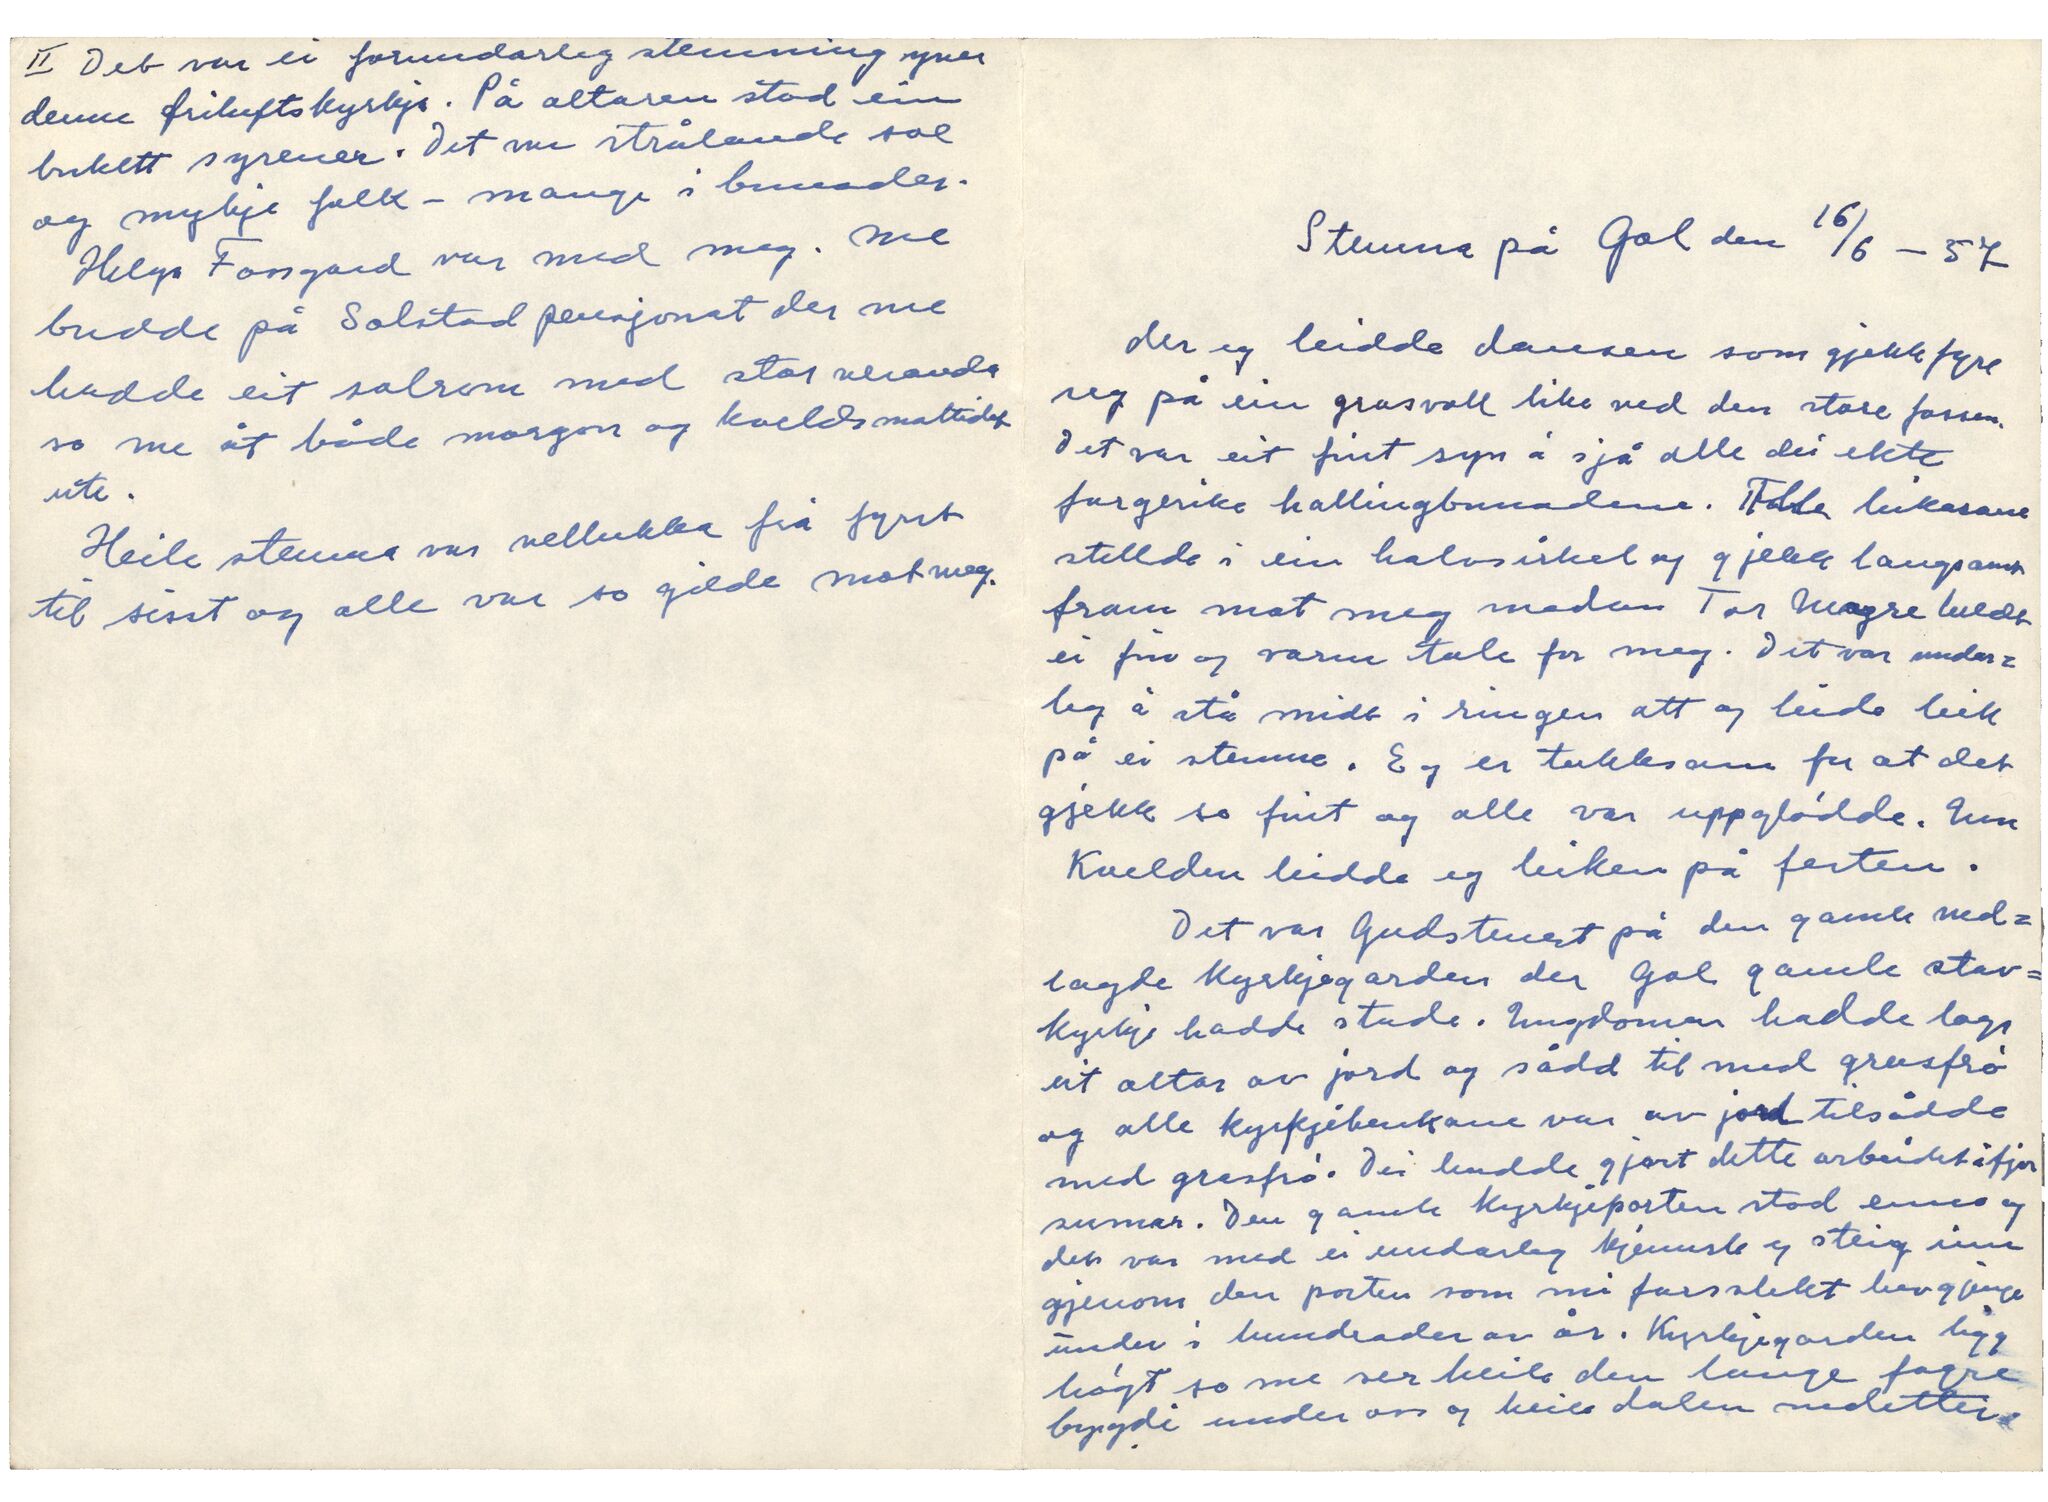 Stemna på Gol den 16/6 – 57
der eg leidde dansen som gjekk fyre
seg på ein grasvoll like ved den store fossen.
Det var eit fint syn å sjå alle dei ekte
fargerike hallingbunadene. Alle leikarane
stellde i ein halvsirkel og gjekk langsamt
fram mot meg medan Tor Magre heldt
ei fin og varm tale for meg. Det var under=
leg å stå midt i ringen att og leida leik
på ei stemne. Eg er takksam for at det
gjekk so fint og alle var uppglødde. Um
Kvelden leidde eg leiken på festen.
Det var Gudstenest på den gamle ned=
lagde Kyrkjegarden der Gol gamle stav=
kyrkje hadde stade. Ungdomen hadde laga
eit altar av jord og sådd til med grasfrø
og alle kyrkjebenkane var av jord tilsådde
med grasfrø. Dei hadde gjort dette arbeidet ifjor
sumar. Den gamle Kyrkjeporten stod enno og
det var med ei underleg kjensle eg steig inn
gjenom den porten som mi farsslekt hev gjenge
under i hundrader av år. Kyrkjegarden ligg
høgt so me ser heile den lange fagre
bygdi under oss og heile dalen nedetter.
II Det var ei forundarleg stemning yver
denne friluftskyrkje. På altaren stod ein
bukett syrener. Det var strålande sol
og mykje folk – mange i bunader.
Helga Fossgard var med meg. Me
budde på Solstad pensjonat der me
hadde eit solrom med stor veranda
so me åt både morgon og kveldsmattidet
ute.
Heile stemna var vellukka frå fyrst
til sisst og alle var so gilde mot meg.